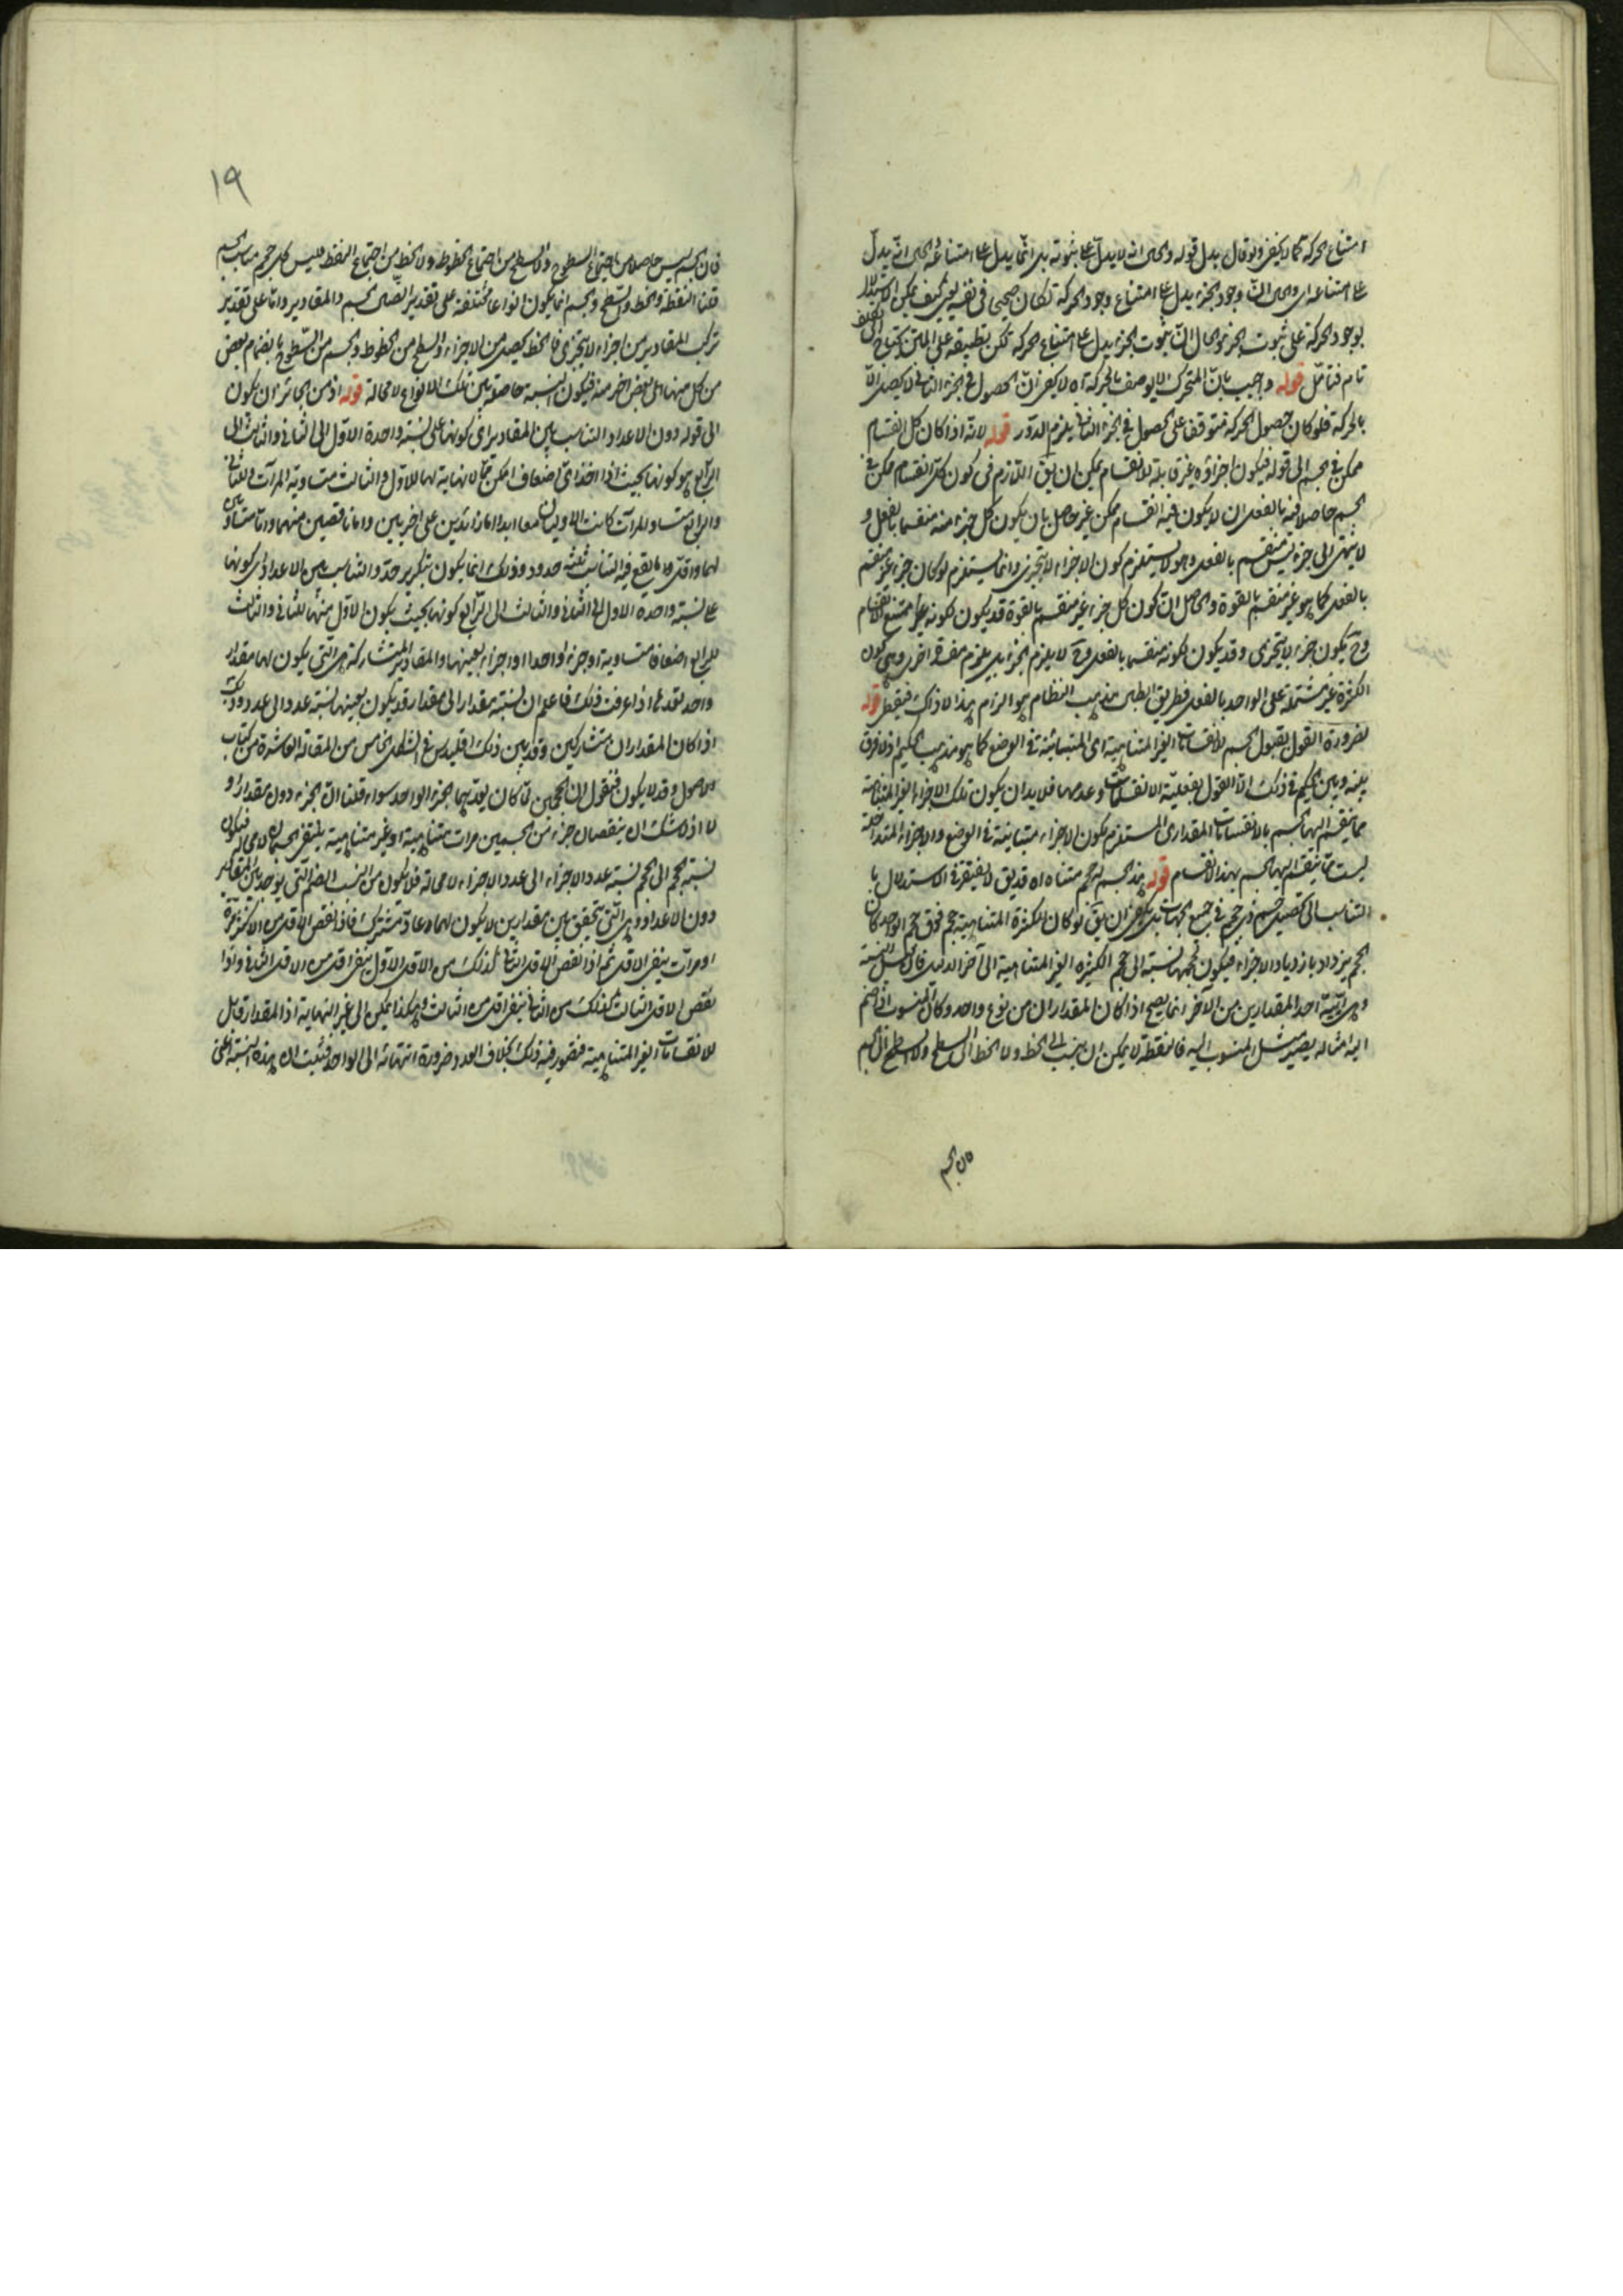 امتناع الحركة كما لا يخفى ولو قال بدل قوله والحق انه لا يدل على ثبوته بل انما يدل على امتناعه الحق انه يدل
على امتناعه اى والحق ان وجود الجزء يدل على امتناع وجود الحركة لكان صحيحا فى نفسه لكن كيف يمكن الاستدلال
بوجود الحركة على ثبوت الجزء والحال ان ثبوت الجزء يدل على امتناع الحركة لكن تطبيقه على المتن يحتاج الى تكلف
تام فتأمل قوله واجيب بان المتحرك لا يوصف بالحركة اه لا يخفى ان الحصول فى الجزء الثانى لا يحصل الا
بالحركة فلو كان حصول الحركة متوقفا على الحصول فى الجزء الثانى يلزم الدور قوله لانه اذا كان كل انقسام
ممكن فى الجسم الى قوله فيكون اجزاؤه غير قابلة للانقسام يمكن ان يقال اللازم فى كون كل انقسام ممكن فى
الجسم حاصلا فيه بالفعل ان لا يكون فيه انقسام ممكن غير حاصل بان يكون كل جزء منه منقسما بالفعل و
لا ينتهى الى جزء ليس منقسم بالفعل وهو لا يستلزم كون الاجزاء لا يتجزى وانما يستلزم لو كان جزء غير منقسم
بالفعل كما هو غير منقسم بالقوة والحاصل ان كون كل جزء غير منقسم بالقوة قد يكون لكونه جزءا ممتنع الانقسام
وح يكون جزء لا يتجزى وقد يكون لكونه منقسما بالفعل وح لا يلزم الجزء بل يلزم مفسدة اخرى وهى كون
الكثرة غير مشتملة على الواحد بالفعل فطريق ابطال مذهب النظام هو الزام هذا لا ذاك فتيقظ قوله
لضرورة القول بقبول الجسم للانقسامات الغير المتناهية اى المتباينة فى الوضع كما هو مذهب الحكيم اذ لا فرق
بينه وبين الحكيم فى ذلك الا القول بفعلية الانقسامات وعدمها فلا بد ان يكون تلك الاجزاء الغير المتناهية
مما ينقسم اليها الجسم بالانقسامات المقدارى المستلزم لكون الاجزاء متباينة فى الوضع والاجزاء المتداخلة
ليست مما ينقسم اليها الجسم بهذا الانقسام قوله هذا الجسم له حجم متناه اه قد يقال لا يفتقر فى الاستدلال با
التناسب الى تحصيل جسم ذى حجم فى جميع الجهات بل يكفى ان يقال لو كان للكثرة المتناهية حجم فوق حجم الواحد كان
الحجم يزداد بازدياد الاجزاء فيكون لحجمها نسبة الى حجم الكثيرة الغير المتناهية الى آخر الدليل فان النسبة
وهى ايية احد المقدارين من الآخر انما يصح اذا كان المقداران من نوع واحد وكان المنسوب اذا ضم
اليه امثاله يصير مثل المنسوب اليه فالنقطة لا يمكن ان ينسب الى الخط ولا الخط الى السطح ولا السطح الى الجسم
فان الجسم
١٩
فان الجسم ليس حاصلا من اجتماع السطوح ولا السطح من اجتماع الخطوط ولا الخط من اجتماع النقط فليس لكل حجم مناسب الجسم
قلنا النقطة والخط والسطح والجسم انما يكون انواعا مختلفة على تقدير اتصال الجسم والمقادير واما على تقدير
تركب المقادير من اجزاء لا يتجزى فالخط يحصل من الاجزاء والسطح من الخطوط والجسم من السطوح بانضمام بعض
من كل منها الى بعض اخر منه فيكون النسبة حاصلة بين تلك الانواع لا محالة قوله اذ من الجائز ان يكون
الى قوله دون الاعداد التناسب بين المقادير اى كونها على نسبة واحدة الاول الى الثانى والثالث الى
الرابع هو كونها بحيث اذا اخذ اى اضعاف امكن مما لا نهاية لها للاول والثالث متساوية المرات وللثانى
والرابع متساو المرات كانت الاوليان معا ابدا اما زائدين على اخريين واما ناقصين منهما واما مساوى
لهما واقل ما يقع فيه التناسب ثلثه حدود وذلك انما يكون بتكرير حد والتناسب بين الاعداد اى كونها
على نسبة واحدة الاول الى الثانى والثالث الى الرابع كونها بحيث يكون الاول منها للثانى والثالث
للرابع اضعافا متساوية او جزءا واحدا او اجزاء بعينها والمقادير المتشاركة هى التى يكون لها مقدار
واحد بعدها اذا عرفت ذلك فاعلم ان نسبة مقدار الى مقدار قد يكون بعينها نسبة عدد الى عدد وذلك
اذا كان المقداران متشاركين وقد بين ذلك اقليدس فى الشكل الخامس من المقالة العاشرة من كتاب
الاصول وقد لا يكون فنقول ان الحجمين لما كان يعدهما الجزء الواحد سواء قلنا ان الجزء دون مقدار او
لا اذ لا شك ان بنقصان جزء من الجسمين مرات متناهية او غير متناهية ينتفى الجسمان لا محالة فيكون
نسبة الحجم الى الحجم نسبة عدد الاجزاء الى عدد الاجزاء لا محالة فلا يكون من النسب الصم التى يوجد بين المقادير
دون الاعداد وهى التى يتحقق بين مقدارين لا يكون لهما عاد مشترك فاذا نقص الاقل من الاكثر مرة
او مرات يبقى الاقل ثم اذا نقص الاقل الثانى كذلك من الاقل الاول يبقى اقل من الاقل الثانى واذا
نقص الاقل الثالث كذلك من الثانى يبقى اقل من الثالث وهكذا يمكن الى غير النهاية اذ المقدار قابل
للانقسامات الغير المتناهية فيتصور فيه ذلك بخلاف العدد ضرورة انتهائه الى الواحد فثبت ان هذه النسبة اعنى